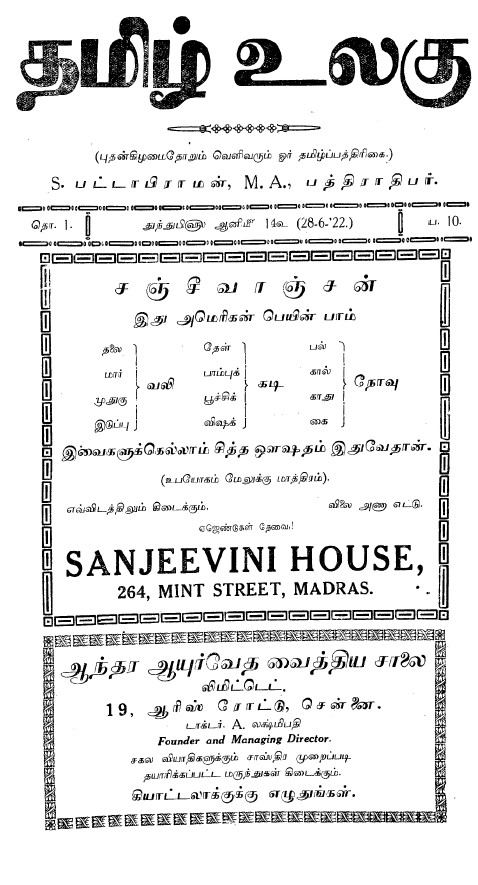 தமிழ் உலகு
(புதன்கிழமைதோறும் வெளிவரும் ஓர் தமிழ்ப்பத்திரிகை.)
S. பட்டாபிராமன், M. A., பத்திராதிபர்.
தொ. 1. துந்துபிளூ ஆனிமீ 14உ (28-6-'22.) ப. 10.
சஞ்சீவாஞ்சன்
இது அமெரிகன் பெயின் பாம்
தலை தேள் பல்
மார் பாம்புக் கால்
வலி கடி நோவு
முதுகு பூச்சிக் காது
இடுப்பு விஷக் கை
இவைகளுக்கெல்லாம் சித்த ஔஷதம் இதுவேதான்.
(உபயோகம் மேலுக்கு மாத்திரம்).
எவ்விடத்திலும் கிடைக்கும். விலை அணா எட்டு.
ஏஜெண்டுகள் தேவை!
SANJEEVINI HOUSE,
264, MINT STREET, MADRAS.
ஆந்தர ஆயுர்வேத வைத்திய சாலை
லிமிட்டெட்.
19, ஆரிஸ் ரோட்டு, சென்னை.
டாக்டர். A. லக்ஷ்மிபதி
Founder and Managing Director.
சகல வியாதிகளுக்கும் சாஸ்திர முறைப்படி
தயாரிக்கப்பட்ட மருந்துகள் கிடைக்கும்.
கியாட்டலாக்குக்கு எழுதுங்கள்.